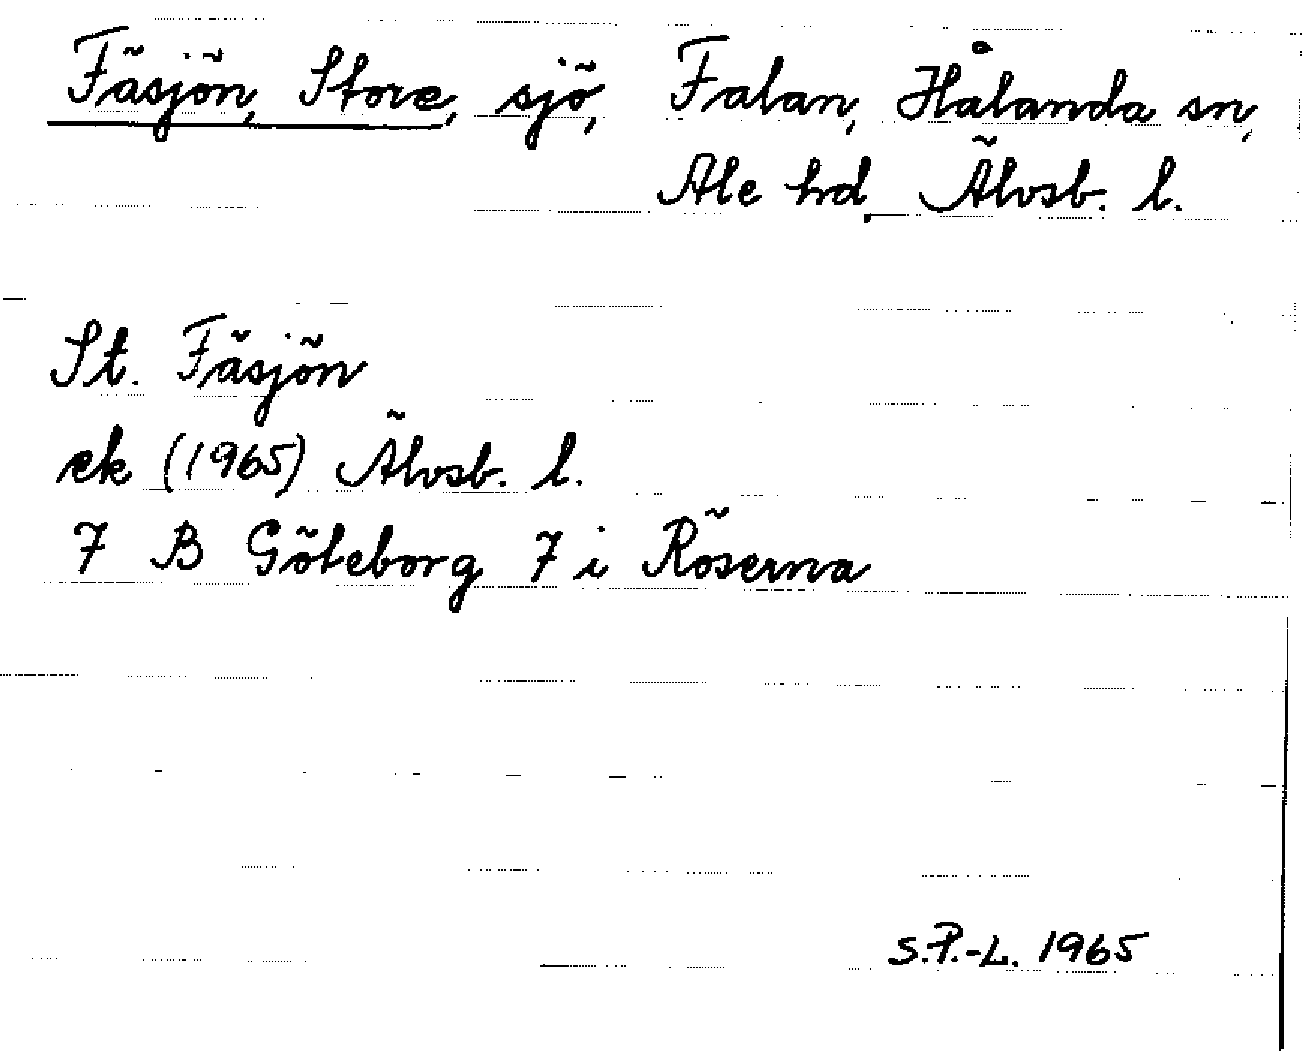 Fäsjön, Store, sjö, Falan, Hålanda sn,
Ale hd, Älvsb. l.
St. Fäsjön
ek (1965) Älvsb. l.
7 B Göteborg 7 i Röserna
S.P.-L. 1965